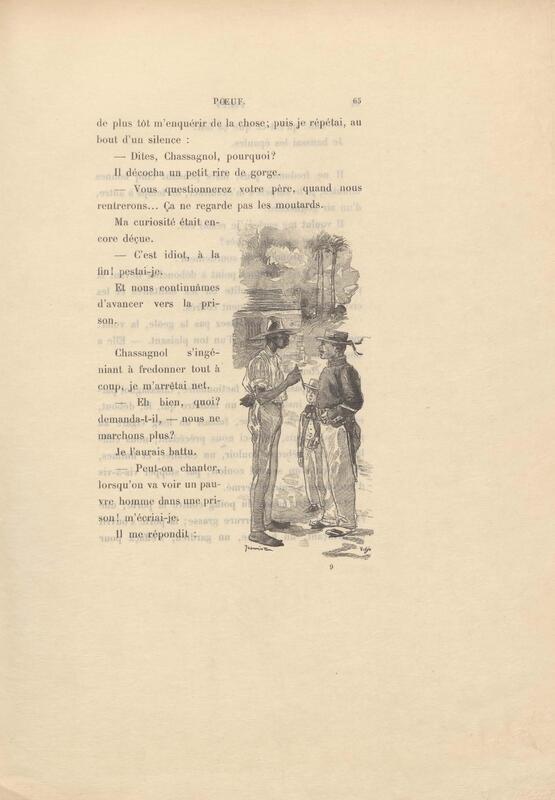 PŒUF. 65
de plus tôt m'enquérir de la chose; puis je répétai, au
bout d'un silence :
— Dites, Chassagnol, pourquoi?
Il décocha un petit rire de gorge.
— Vous questionnerez votre père, quand nous
rentrerons... Ça ne regarde pas les moutards.
Ma curiosité était en-
core déçue.
— C'est idiot, à la
fin! pestai-je.
Et nous continuâmes
d'avancer vers la pri-
son.
Chassagnol s'ingé-
niant à fredonner tout à
coup, je m'arrêtai net.
— Eh bien, quoi?
demanda-t-il, — nous ne
marchons plus?
Je l'aurais battu.
— Peut-on chanter,
lorsqu'on va voir un pau-
vre homme dans une pri-
son! m'écriai-je.
Il me répondit :
9